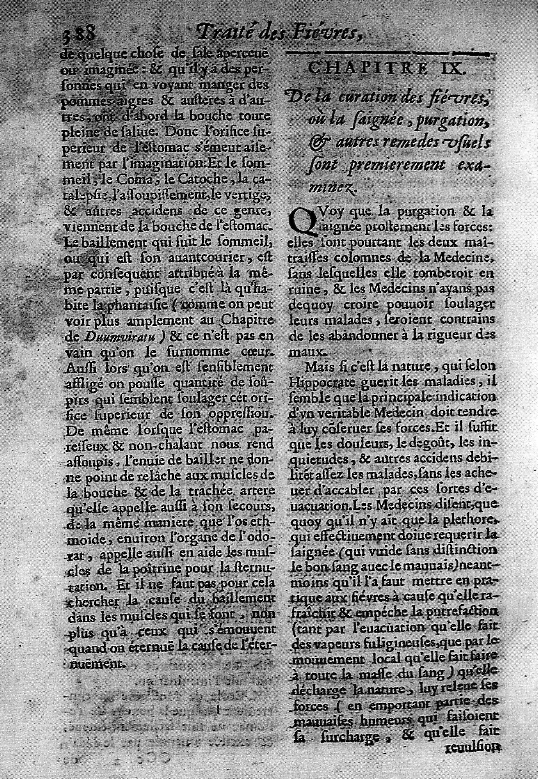 388 Traité des Fiévres,
de quelque chose de sale aperceuë
ou imaginée : & qu'il y a des per-
sonnes qui en voyant manger des
pommes aigres & austeres à d'au-
tres, ont d'abord la bouche toute
pleine de saliue. Donc l'orifice su-
perieur de l'estomac s'émeut aise-
ment par l'imagination. Et le som-
meil, le Coma, le Catoche, la ca-
talepsie, l'assoupissement, le vertige,
& autres accidens de ce genre,
viennent de la bouche de l'estomac.
Le baillement qui suit le sommeil,
ou qui est son auantcourier, est
par consequent attribué à la mê-
me partie, puisque c'est là qu'ha-
bite la phantaisie ( comme on peut
voir plus amplement au Chapitre
de Duumviratu ) & ce n'est pas en
vain qu'on le surnomme cœur.
Aussi lors qu'on est sensiblement
affligé on pousse quantité de soû-
pirs qui semblent soulager cét ori-
fice superieur de son oppression.
De même lorsque l'estomac pa-
resseux & non-chalant nous rend
assoupis, l'enuie de bailler ne don-
ne point de relâche aux muscles de
la bouche & de la trachée artere
qu'elle appelle aussi à son secours,
de la même maniere que l'os eth-
moide, enuiron l'organe de l'odo-
rat, appelle aussi en aide les mus-
cles de la poîtrine pour la sternu-
tation. Et il ne faut pas pour cela
chercher la cause du baillement
dans les muscles qui se font, non
plus qu'à ceux qui s'émouuent
quand on éternuë la cause de l'éter-
nuëment.
CHAPITRE IX.
De la curation des fiévres,
où la saignée, purgation,
& autres remedes vsuels
sont premierement exa-
minez.
QVoy que la purgation & la
saignée prosternent les forces:
elles sont pourtant les deux maî-
traisses colomnes de la Medecine,
sans lesquelles elle tomberoit en
ruine, & les Medecins n'ayans pas
dequoy croire pouuoir soulager
leurs malades, seroient contrains
de les abandonner à la rigueur des
maux.
Mais si c'est la nature, qui selon
Hippocrate guerit les maladies, il
semble que la principale indication
d'vn veritable Medecin doit tendre
à luy cõseruer ses forces. Et il suffit
que les douleurs, le degoût, les in-
quietudes, & autres accidens debi-
litēt assez les malades, sans les ache-
uer d'accabler par ces sortes d'e-
uacuation. Les Medecins disent, que
quoy qu'il n'y ait que la plethore,
qui effectiuement doiue requerir la
saignée (qui vuide sans distinction
le bon sang auec le mauuais) neant-
moins qu'il l'a faut mettre en pra-
tique aux fiévres à cause qu'elle ra-
fraîchit & empéche la putrefaction
(tant par l'euacuation qu'elle fait
des vapeurs fuligineuses, que par le
mouuement local qu'elle fait faire
à toute la masse du sang) qu'elle
décharge la nature, luy releue ses
forces ( en emportant partie des
mauuaises humeurs qui faisoient
sa surcharge, & qu'elle fait
reuulsion